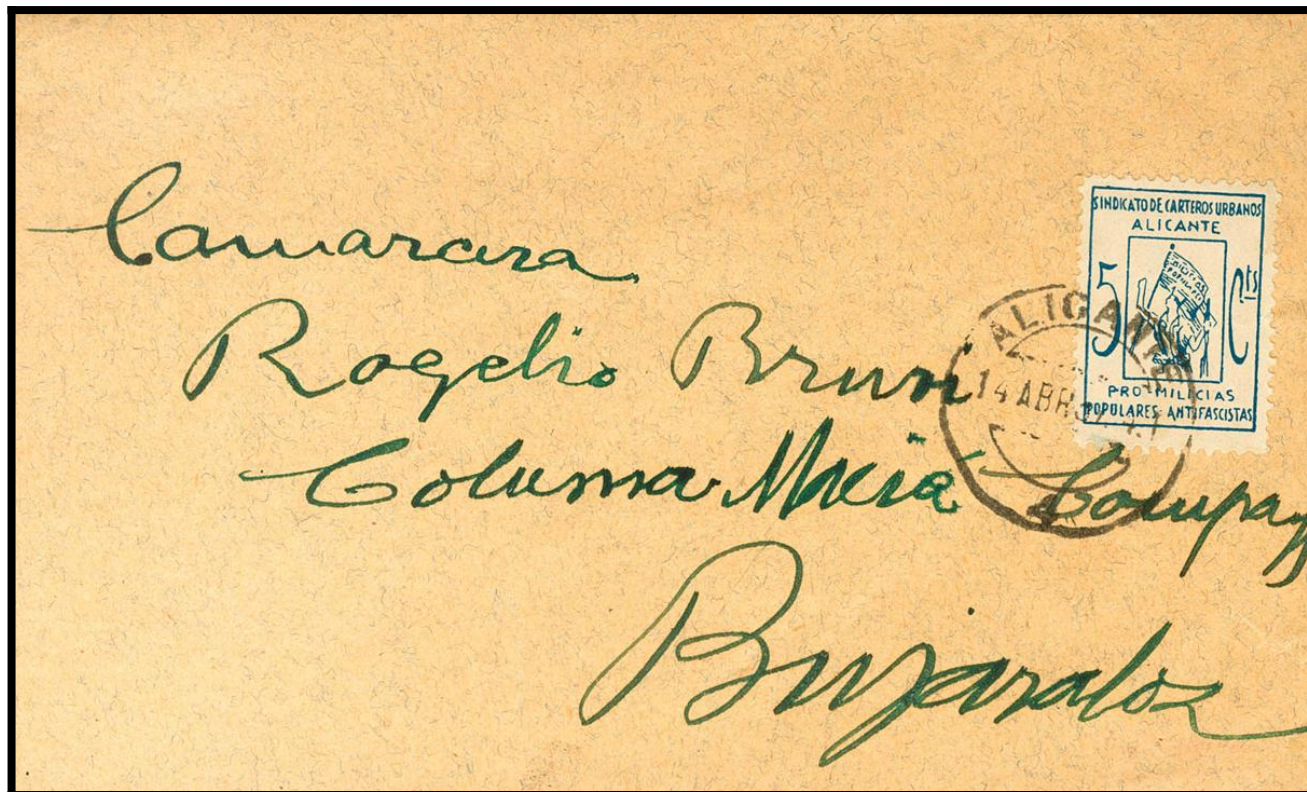 Camarara
Rogelio Brun
Columna Maciá Compay
Bujaraloz
SINDICATO DE CARTEROS URBANOS
ALICANTE
5 Cts
PRO-MILICIAS
POPULARES ANTIFASCISTAS
ALICANTE
14 ABR 37